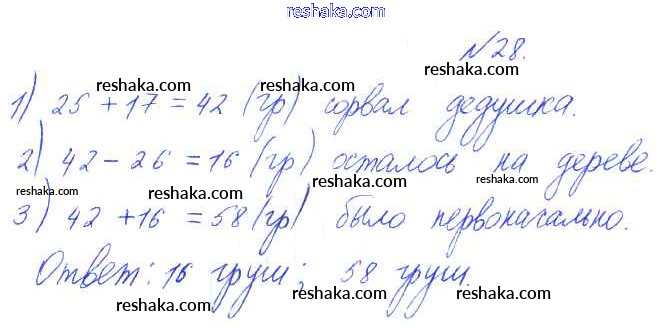 reshaka.com
№28.
reshaka.com reshaka.com reshaka.com
1) 25 + 17 = 42 (гр) сорвал дедушка.
reshaka.com reshaka.com
2) 42 - 26 = 16 (гр) осталось на дереве.
reshaka.com reshaka.com reshaka.com reshaka.com
3) 42 + 16 = 58 (гр) было первоначально.
reshaka.com reshaka.com
Ответ: 16 груш; 58 груш.
reshaka.com reshaka.com reshaka.com
reshaka.com